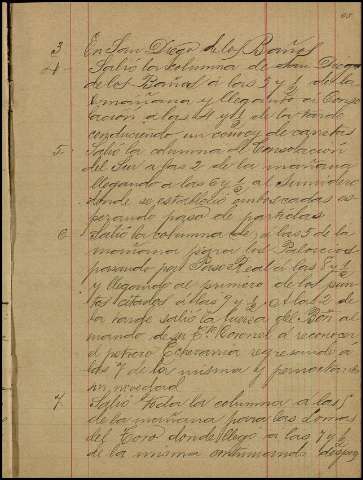 3 En San Diego de los Baños
4 Salió la columna de San Diego
de los Baños a las 3 y ½ de la
mañana y llegando a Con
lación a las 4 y ½ de la tarde
conduciendo un convoy de carretas
5. Salió la columna de Consolación
del Sur a las 2 de la mañana
llegando a las 6 y ½ al
donde se estableció emboscadas es
perando paso de partidas
6 Salió la columna a las 5 de la
mañana para los Palacios
pasando por Paso Real a las 8 y ½
y llegando al primero de los pun
tos citados a las 9 y ½. A las 2 de
la tarde salió la fuerza del Bón al
mando de su Tte Coronel a reconocer
el potrero Echevarria regresando a
las 7 de la misma y
sin novedad
7. Salió toda la columna a las 5
de la mañana para las Lomas
del Toro donde llegó a las 7 y ½
de la misma continuando